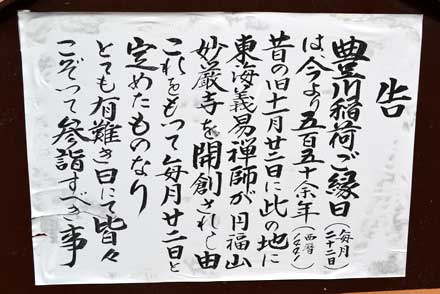 告
豊川稲荷ご縁日(毎月二十二日)
は今より五百五十余年(西暦一四四一)
昔の旧十一月廿二日に此の地に
東海義易禅師が円福山
妙厳寺を開創されし由
これをもって毎月廿二日と
定めたものなり
とても有難き日にて皆々
こぞって参詣すべき事